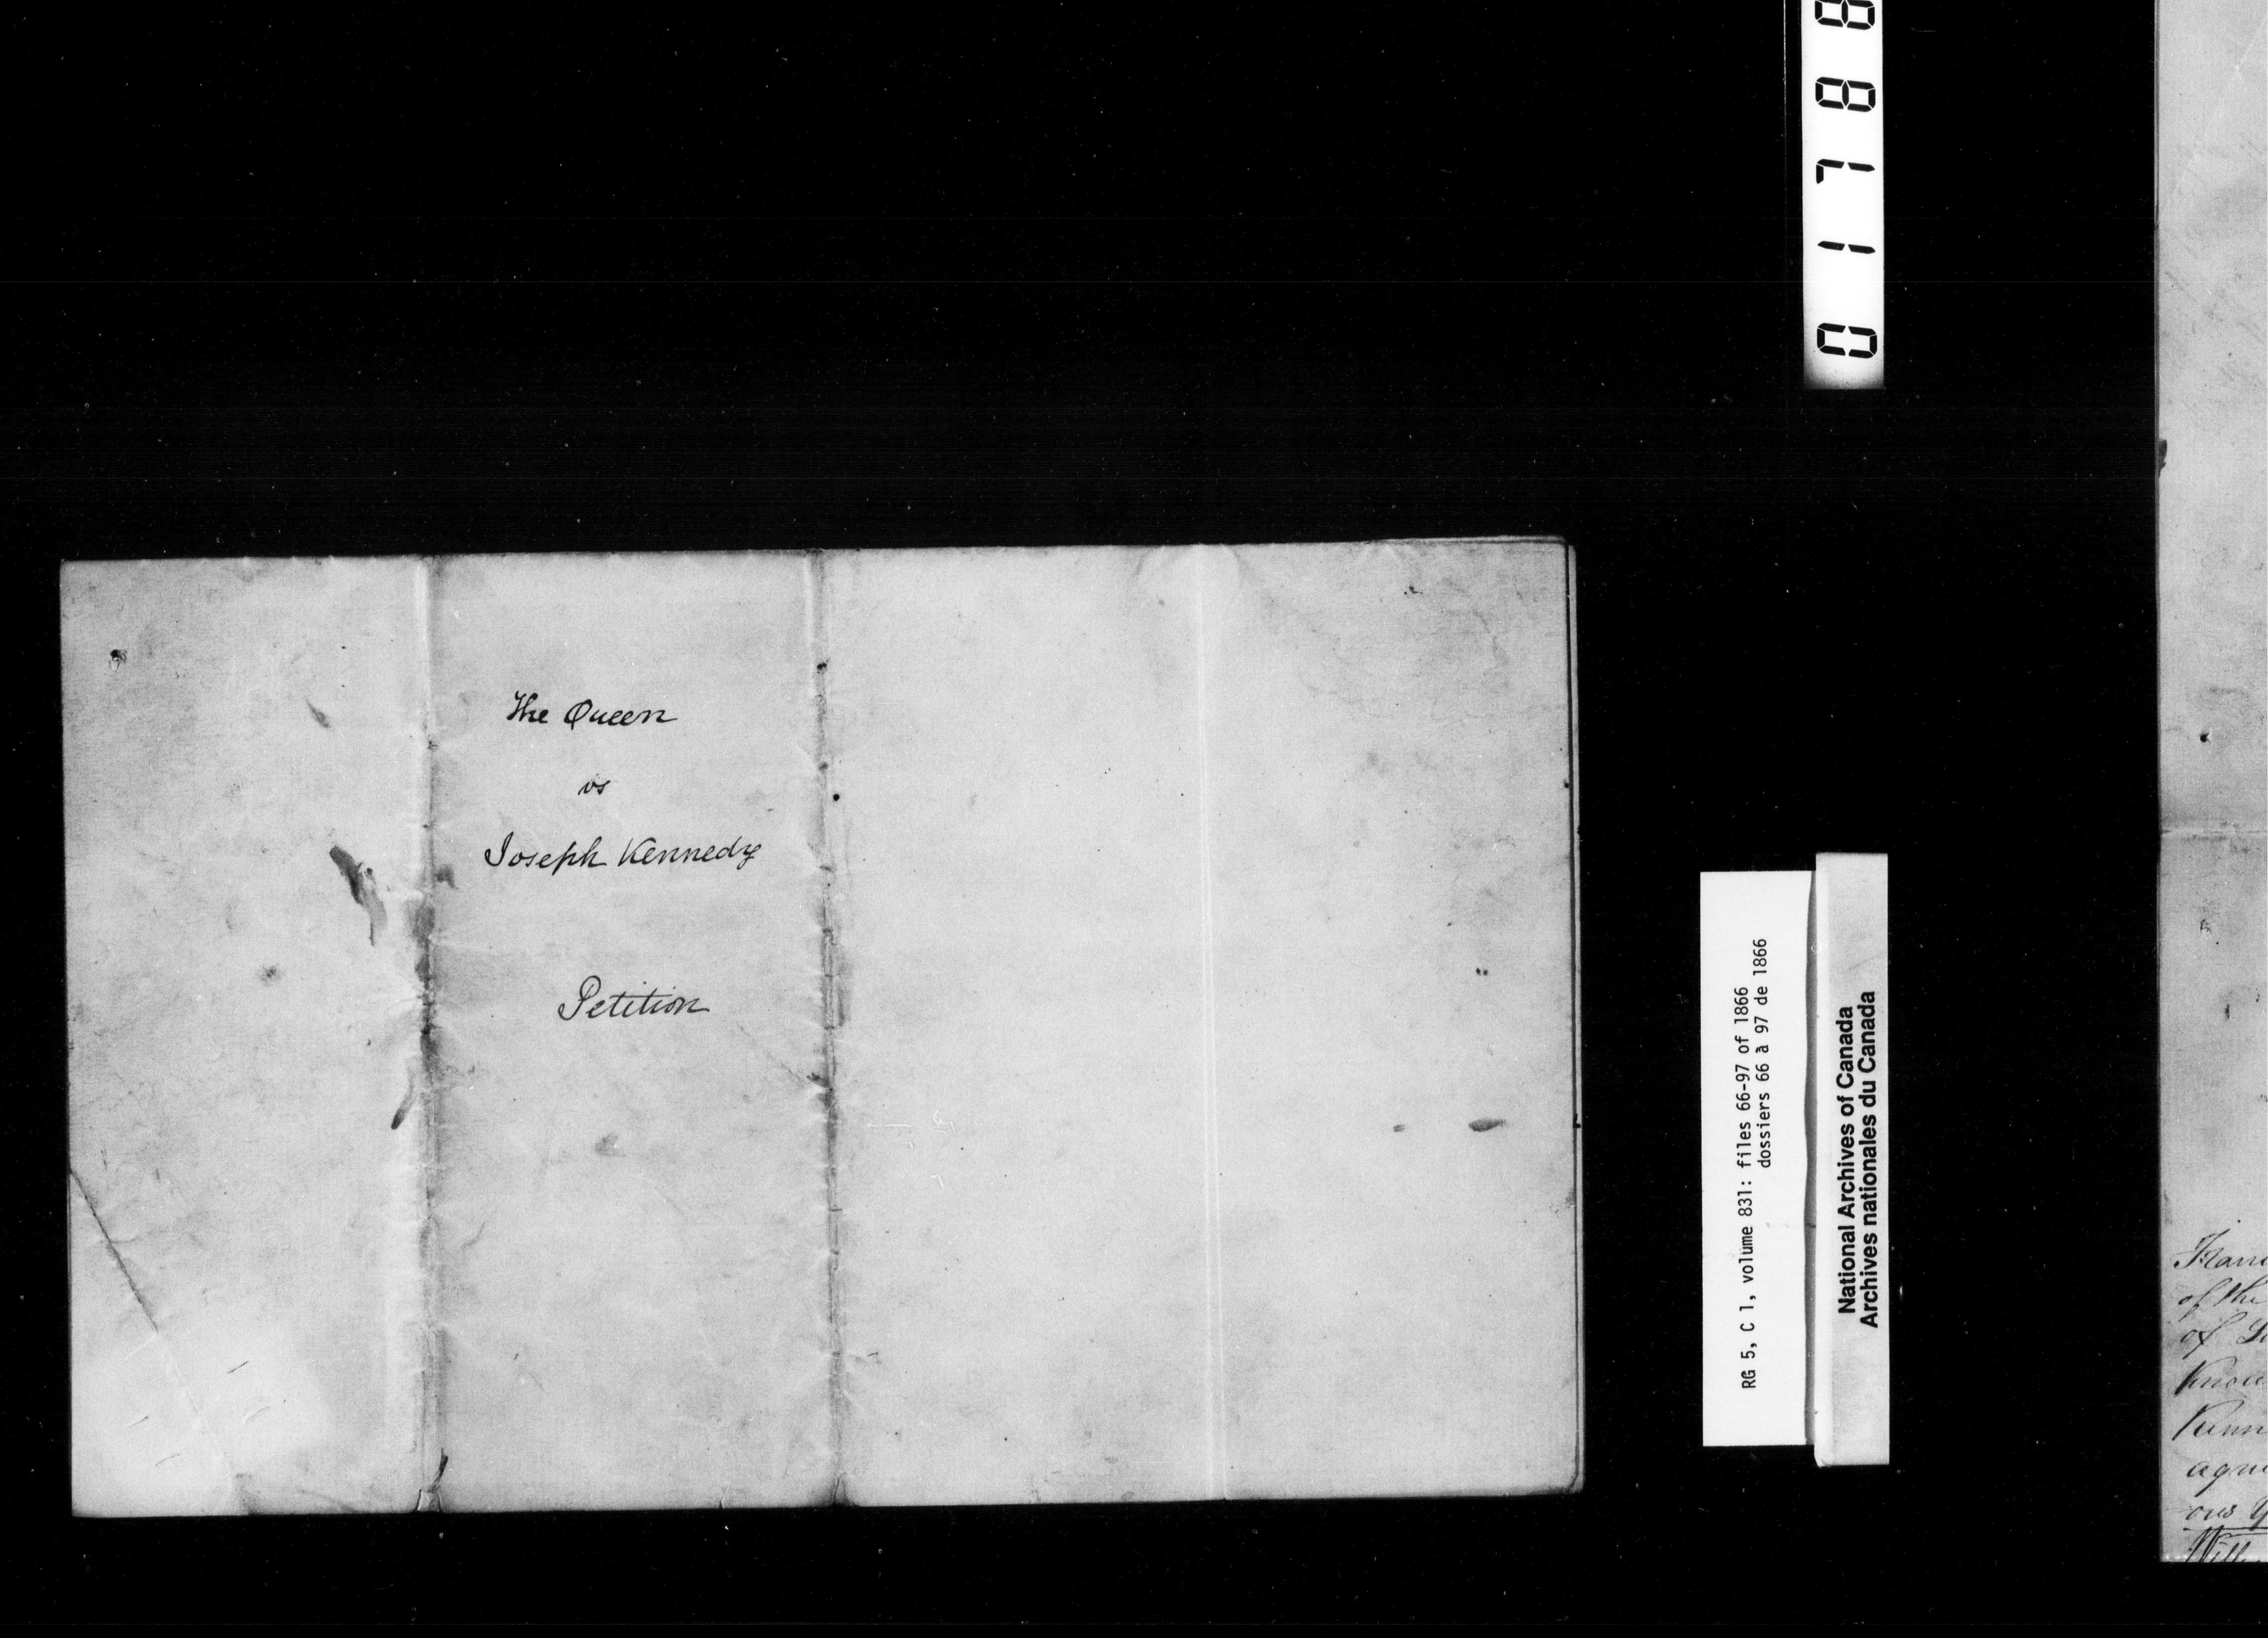 The Queen
vs
Joseph Kennedy
Petition
01788
RG 5, C 1, volume 831: files 66-97 of 1866
dossiers 66 à 97 de 1866
National Archives of Canada
Archives nationales du Canada
of the
of